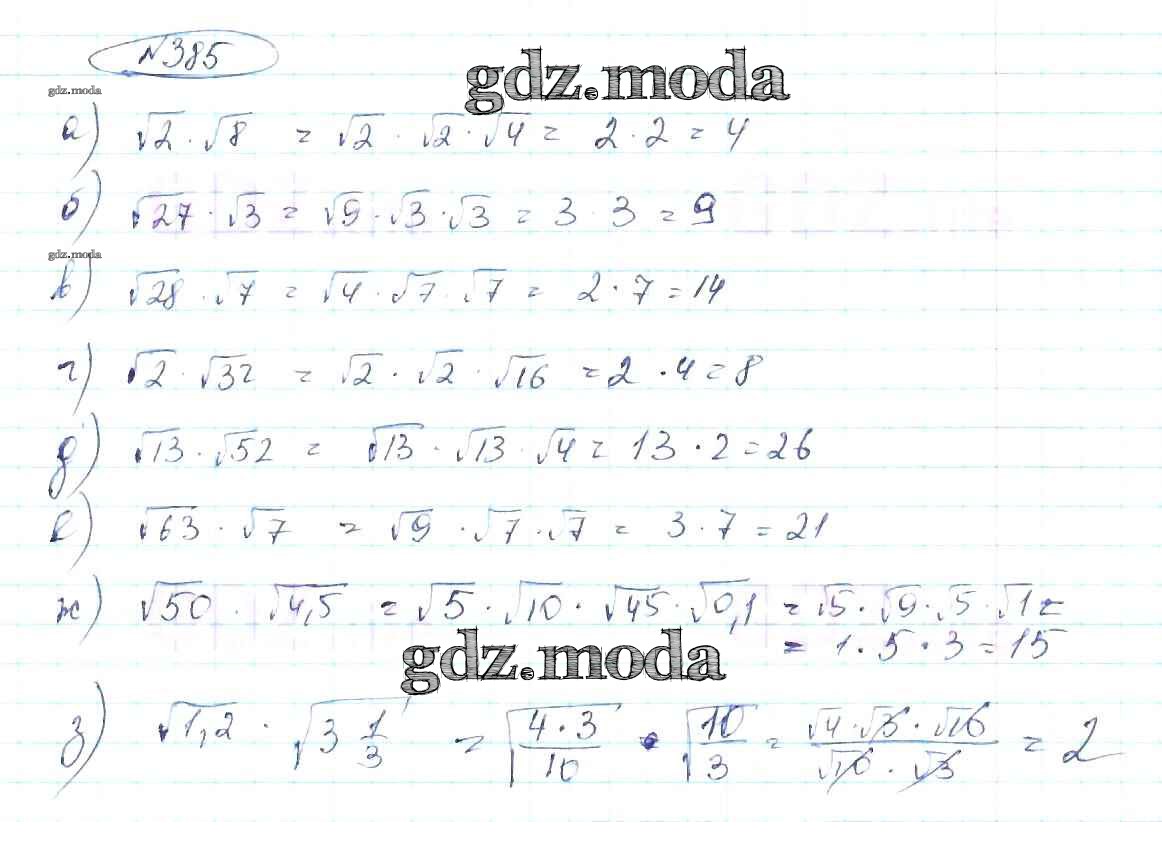 №385
gdz.moda
gdz.moda
а) √2 · √8 = √2 · √2 · √4 = 2 · 2 = 4
б) √27 · √3 = √9 · √3 · √3 = 3 · 3 = 9
gdz.moda
в) √28 · √7 = √4 · √7 · √7 = 2 · 7 = 14
г) √2 · √32 = √2 · √2 · √16 = 2 · 4 = 8
д) √13 · √52 = √13 · √13 · √4 = 13 · 2 = 26
е) √63 · √7 = √9 · √7 · √7 = 3 · 7 = 21
ж) √50 · √4,5 = √5 · √10 · √45 · √0,1 = √5 · √9 · √5 · √1 =
= 1 · 5 · 3 = 15
gdz.moda
з) √1,2 · √(3 1/3) = √(4·3/10) · √(10/3) = (√4 · √3 · √10)/(√10 · √3) = 2